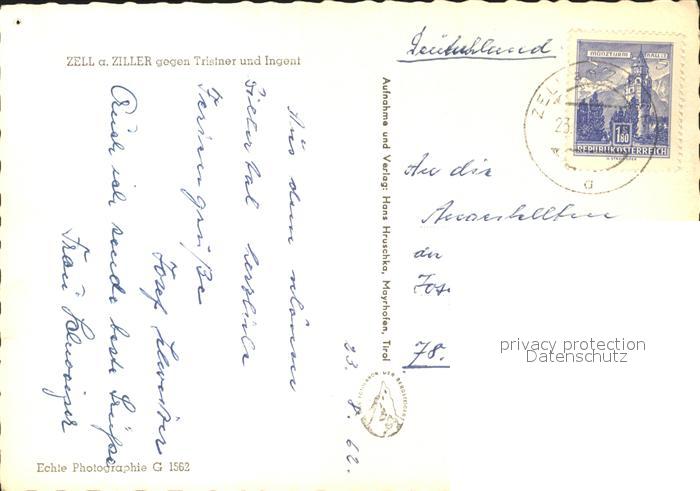 ZELL a. ZILLER gegen Tristner und Ingent
Aus dem schönen
Zillertal herzliche
Feriengrüße
Josef
Auch ich sende beste Grüße
Frau
23. 8. 62.
Echte Photographie G 1562
Aufnahme und Verlag: Hans Hruschka, Mayrhofen, Tirol
Deutschland
MÜNZTURM HALL I.T.
1 S 80
REPUBLIK ÖSTERREICH
ZELL
23.
G
An die
Angestellten
der
Jos.
78.
privacy protection
Datenschutz